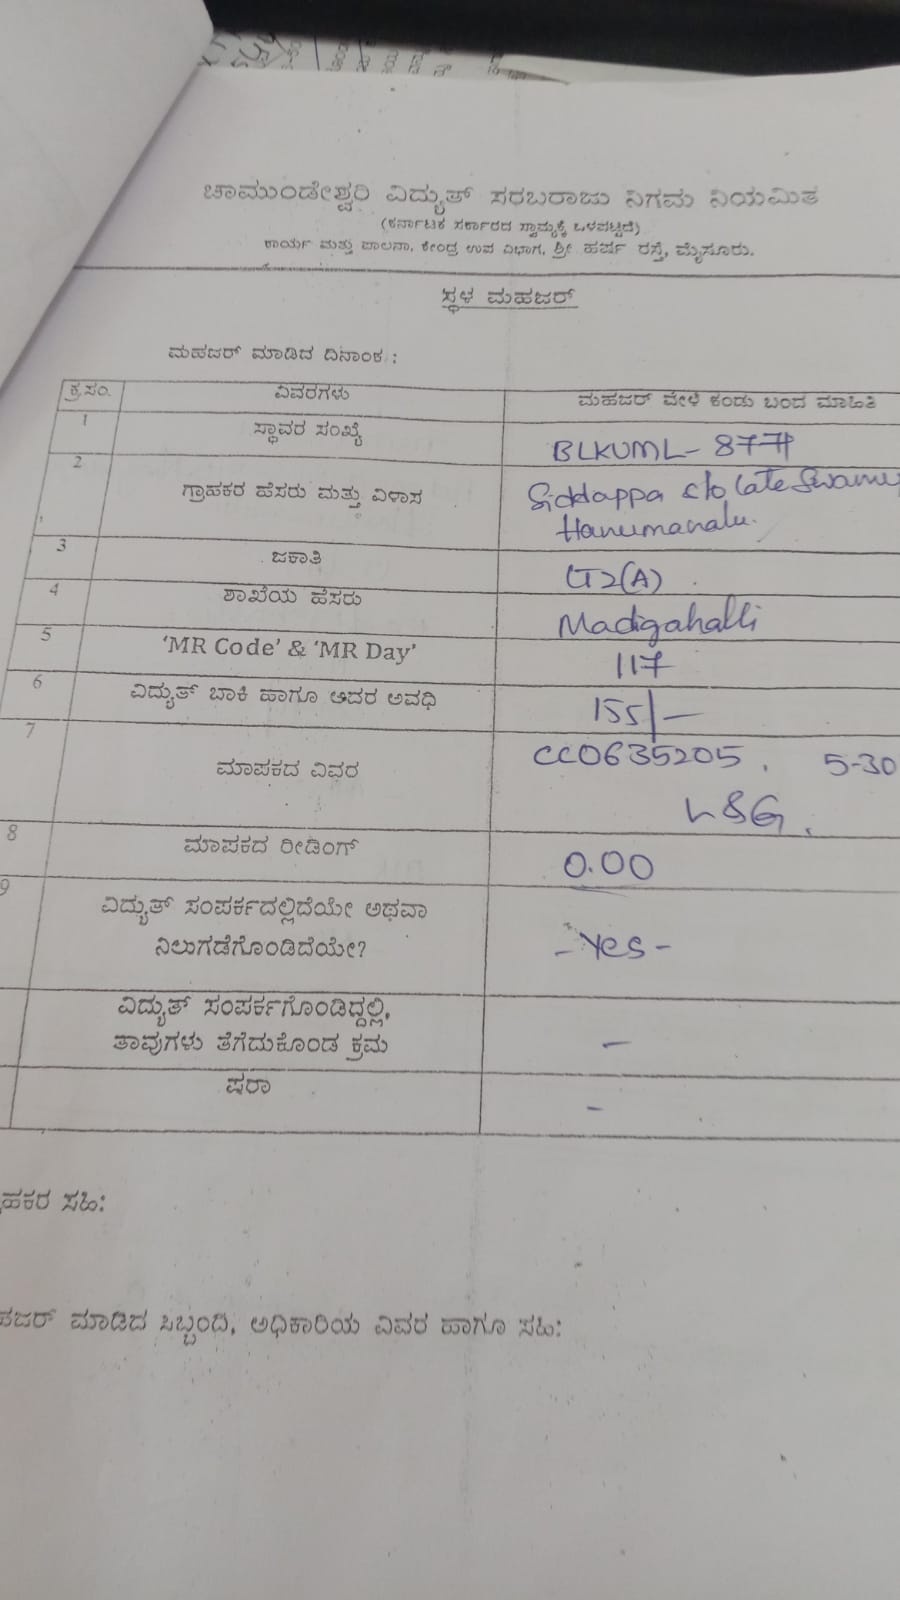 ಚಾಮುಂಡೇಶ್ವರಿ ವಿದ್ಯುತ್ ಸರಬರಾಜು ನಿಗಮ ನಿಯಮಿತ
(ಕರ್ನಾಟಕ ಸರ್ಕಾರದ ಸ್ವಾಮ್ಯಕ್ಕೆ ಒಳಪಟ್ಟಿದೆ)
ಕಾರ್ಯ ಮತ್ತು ಪಾಲನಾ, ಕೇಂದ್ರ ಉಪ ವಿಭಾಗ, ಶ್ರೀ ಹರ್ಷ ರಸ್ತೆ, ಮೈಸೂರು.
ಸ್ಥಳ ಮಹಜರ್
ಮಹಜರ್ ಮಾಡಿದ ದಿನಾಂಕ :
ಕ್ರ.ಸಂ. ವಿವರಗಳು ಮಹಜರ್ ವೇಳೆ ಕಂಡು ಬಂದ ಮಾಹಿತಿ
1 ಸ್ಥಾವರ ಸಂಖ್ಯೆ BLKUML-877
2 ಗ್ರಾಹಕರ ಹೆಸರು ಮತ್ತು ವಿಳಾಸ Siddappa c/o Late
Hanumanalu.
3 ಜಕಾತಿ LT2(A)
4 ಶಾಖೆಯ ಹೆಸರು Madigahalli
5 'MR Code' & 'MR Day' 117
6 ವಿದ್ಯುತ್ ಬಾಕಿ ಹಾಗೂ ಅದರ ಅವಧಿ 155/-
7 ಮಾಪಕದ ವಿವರ CC0635205. 5-30
L&G.
8 ಮಾಪಕದ ರೀಡಿಂಗ್ 0.00
9 ವಿದ್ಯುತ್ ಸಂಪರ್ಕದಲ್ಲಿದೆಯೇ ಅಥವಾ
ನಿಲುಗಡೆಗೊಂಡಿದೆಯೇ? -Yes-
ವಿದ್ಯುತ್ ಸಂಪರ್ಕಗೊಂಡಿದ್ದಲ್ಲಿ,
ತಾವುಗಳು ತೆಗೆದುಕೊಂಡ ಕ್ರಮ -
ಷರಾ -
ಹಕರ ಸಹಿ:
ಹಜರ್ ಮಾಡಿದ ಸಿಬ್ಬಂದಿ, ಅಧಿಕಾರಿಯ ವಿವರ ಹಾಗೂ ಸಹಿ: